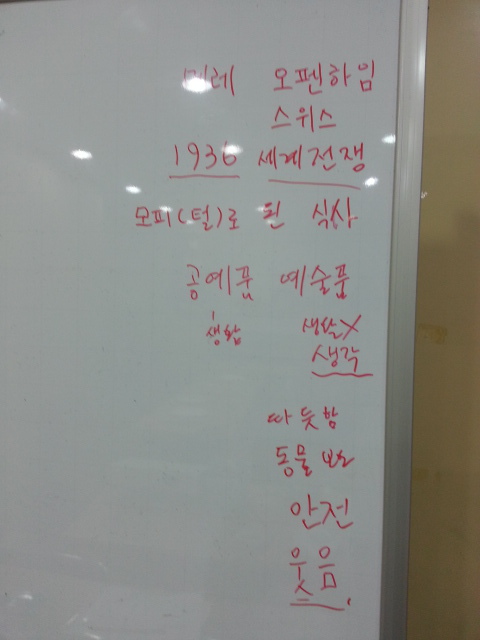 메레 오펜하임
스위스
1936 세계전쟁
모피(털)로 된 식사
공예품 예술품
생활 생활X
생각
따뜻함
동물보호
안전
웃음.